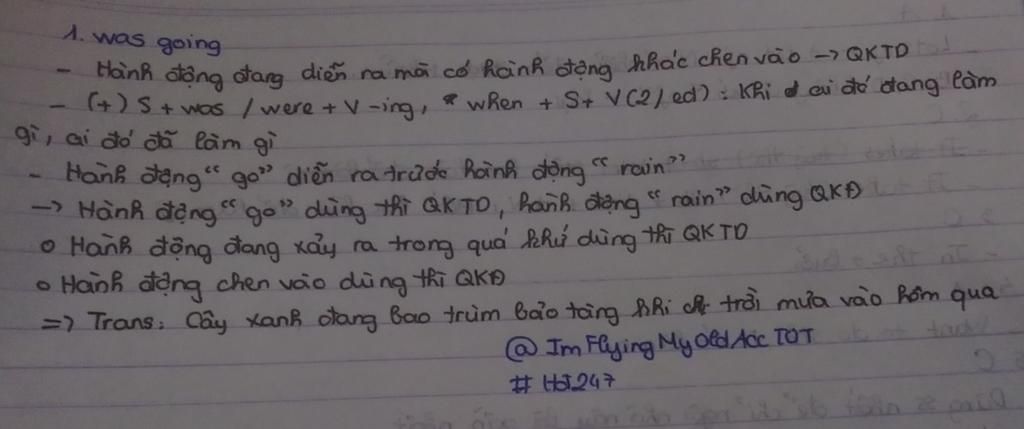 1. was going
- Hành động đang diễn ra mà có hành động khác chen vào → QKTD
- (+) S + was / were + V-ing, when + S + V(2/ed) : Khi ai đó đang làm
gì, ai đó đã làm gì
- Hành động "go" diễn ra trước hành động "rain"
→ Hành động "go" dùng thì QKTD, hành động "rain" dùng QKĐ
o Hành động đang xảy ra trong quá khứ dùng thì QKTD
o Hành động chen vào dùng thì QKĐ
=> Trans: Cây xanh đang bao trùm bảo tàng khi trời mưa vào hôm qua
@ ImFlyingMyOldAccTOT
# H247